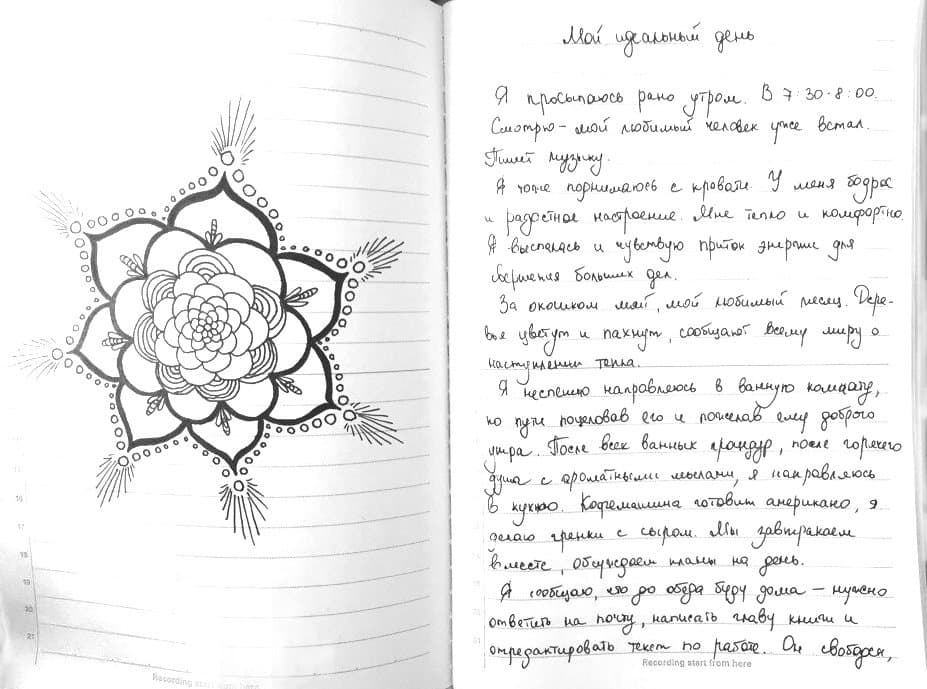 16
17
18
19
20
21
Recording start from here
Мой идеальный день
Я просыпаюсь рано утром. В 7:30-8:00.
Смотрю - мой любимый человек уже встал.
Пишет музыку.
Я тоже поднимаюсь с кровати. У меня бодрое
и радостное настроение. Мне тепло и комфортно.
Я выспалась и чувствую приток энергии для
свершения больших дел.
За окошком май, мой любимый месяц. Дере-
вья цветут и пахнут, сообщают всему миру о
наступлении тепла.
Я неспешно направляюсь в ванную комнату,
по пути поцеловав его и пожелав ему доброго
утра. После всех ванных процедур, после горячего
душа с ароматными мылами, я направляюсь
в кухню. Кофемашина готовит американо, я
делаю гренки с сыром. Мы завтракаем
вместе, обсуждаем планы на день.
Я сообщаю, что до обеда буду дома – нужно
ответить на почту, написать главу книги и
отредактировать текст по работе. Он свободен,
Recording start from here